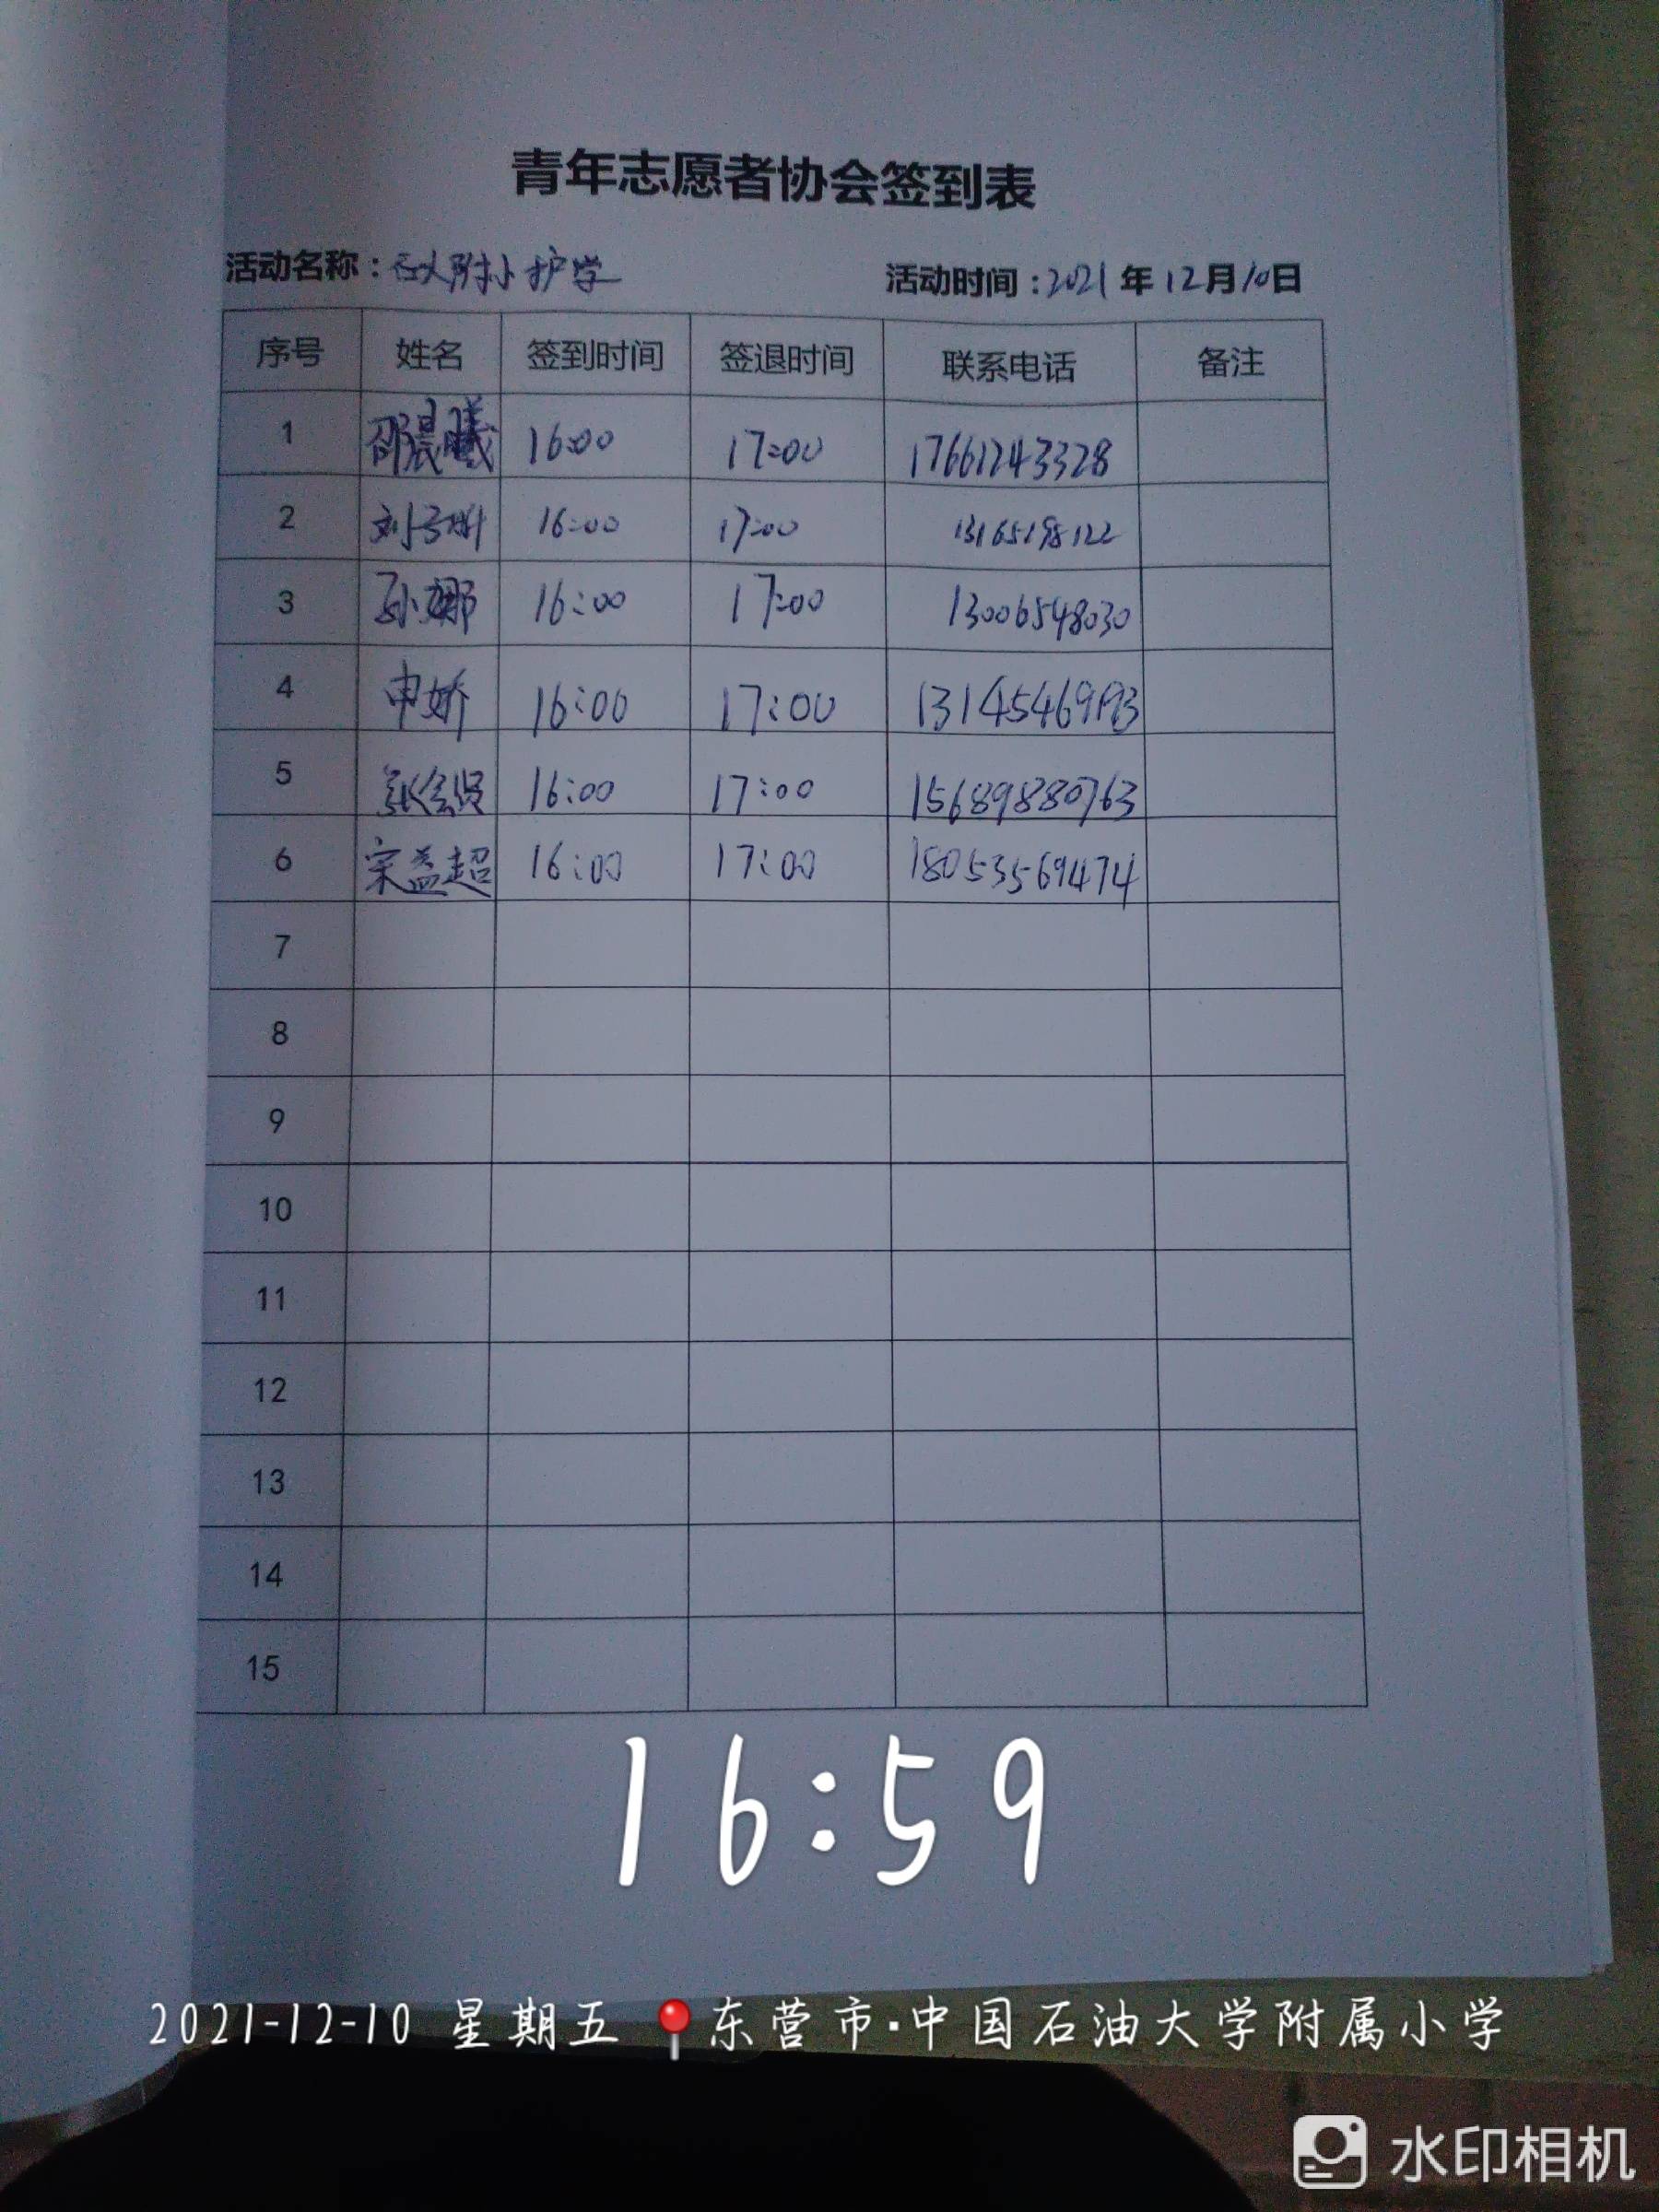 青年志愿者协会签到表
活动名称：石大附小护学 活动时间：2021年12月10日
序号 姓名 签到时间 签退时间 联系电话 备注
1 邵晨曦 16:00 17:00 17661243328
2 16:00 17:00 13165198122
3 孙娜 16:00 17:00 13006548030
4 申娇 16:00 17:00
5 16:00 17:00 15689880763
6 宋益超 16:00 17:00 18053569474
7
8
9
10
11
12
13
14
15
16:59
2021-12-10 星期五 东营市·中国石油大学附属小学
水印相机